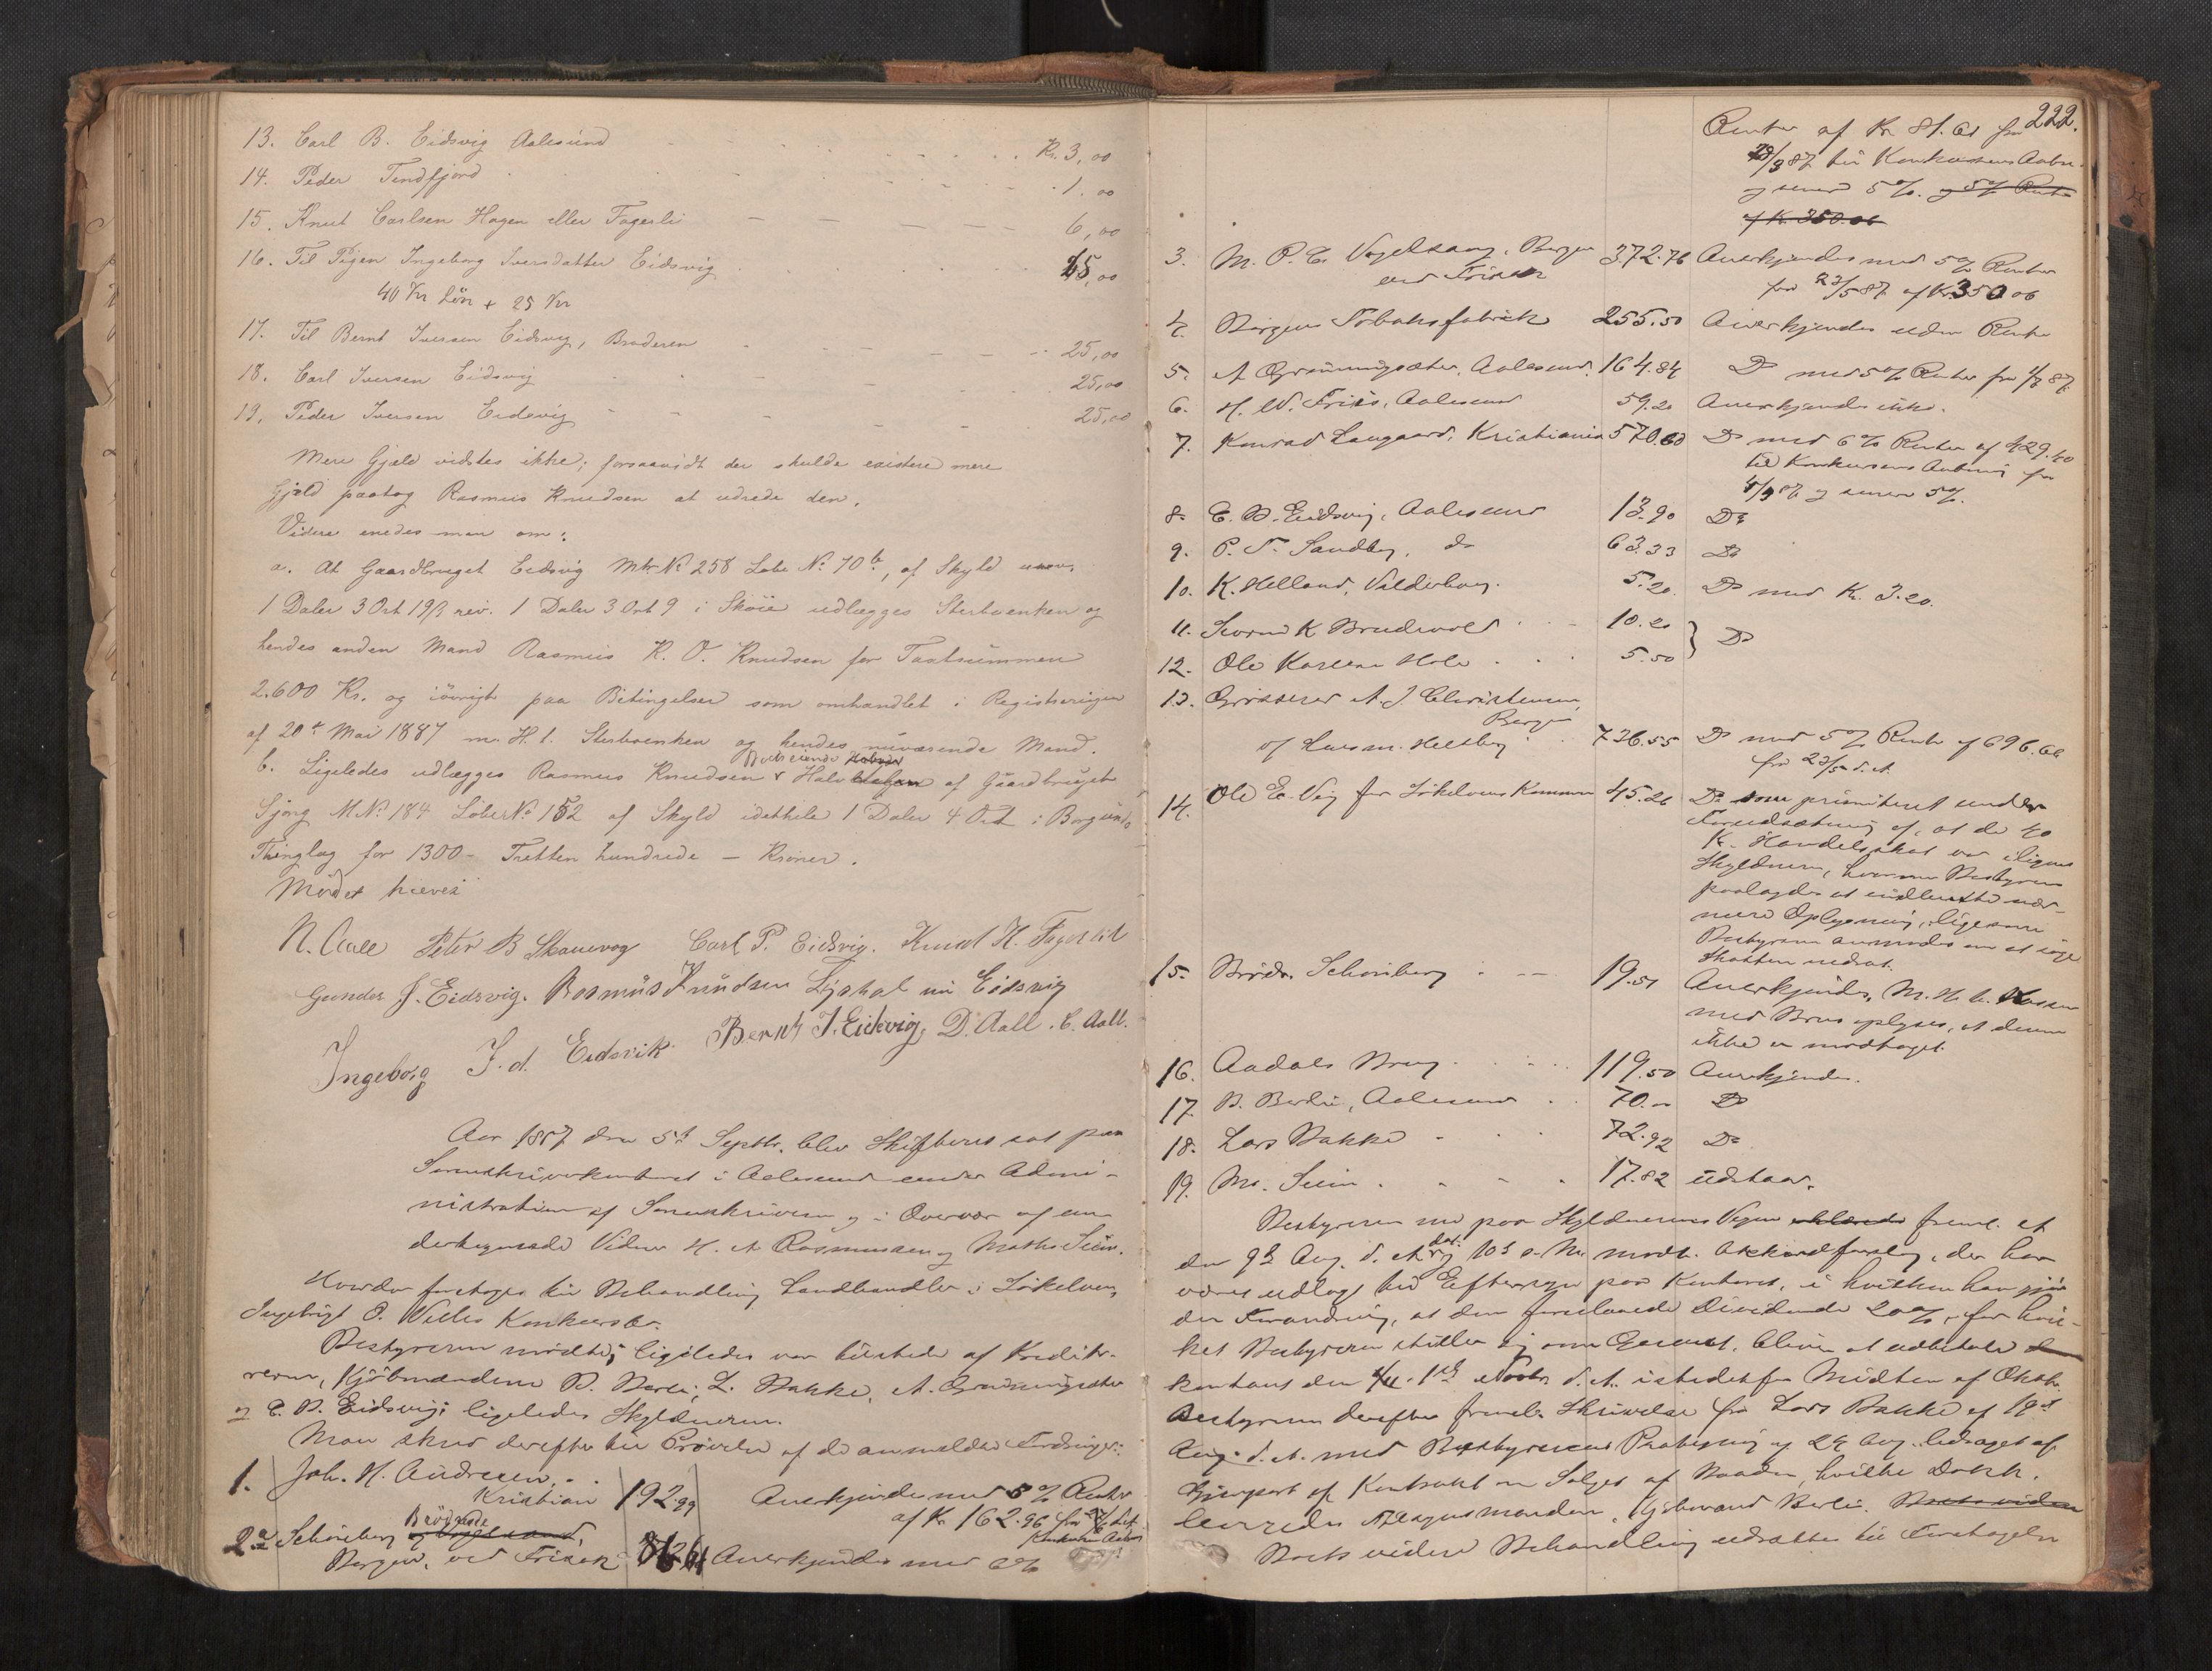 13. Carl B. Eidsvig Aalesund Kr. 3,00
14. Peder Tindfjord 1.00
15. Knut Carlsen Hagen eller Fagerli 6,00
16. Til Pigen Ingeborg Iversdatter Eidsvig 65,00
40 Kr Løn + 25 Kr
17. Til Bernt Iversen Eidsvig, Broderen 25,00
18. Carl Iversen Eidsvig 25,00
19. Peder Iversen Eidsvig 25,00
Mere Gjæld vidstes ikke; forsaavidt der skulde existere mere
Gjæld paatog Rasmus Knudsen at udrede den.
Videre enedes man om:
a. At Gaardbruget Eidsvig Mtr. No 258 Løbe No. 70b, af Skyld
1 Daler 3 Ort 19 β rev. 1 Daler 3 Ort 9 i Skøie udlægges Sterboenken og
hendes anden Mand Rasmus K. O. Knudsen for Taxtsummen
2.600 Kr. og iøvrigt paa Betingelser som omhandlet i Registreringen
af 20de Mai 1887 m. H. t. Sterboenken og hendes nuværende Mand.
b. Ligeledes udlægges Rasmus Knudsen Halvdelen af Gaardbruget
Sjong M.No. 184 LøbeNo. 152 af Skyld idethele 1 Daler 4 Ort i Borgunds
Thinglag for 1300 - Tretten hundrede - Kroner.
Mødet hævet
N. Aall Peter B Skouevog Carl P. Eidsvig. Knut K. Fagerli
Gunder J. Eidsvig. Rasmus Knudsen Eidsvig
Ingeborg J. d. Eidsvik Bernt J. Eidsvig, D. Aall. C. Aall.
Aar 1887 den 5te Septbr. blev Skifteret sat paa
Sorenskriverkontoret i Aalesund under Admi-
nistration af Sorenskriveren og i Overvær af un-
dertegnede Vidner H. A Rasmussen og Mathis Seim.
Hvorda foretages til Behandling Landhandler i Søkelven
Ingebrigt O. Velles Konkursbo.
Bestyreren mødte; ligeledes var tilstede af Kredito-
rerne, Kjøbmændene B. Berli, L. Bakke, A. Grønningsæter
og C. B. Eidsvig; ligeledes Skyldneren.
Man skred derefter til Prøvelse af de anmeldte Fordringer:
1. Joh. H. Andresen,
Kristiania 192.99 Anerkjendes med 6 % Renter
af Kr. 162.96 fra
2. Schøinberg Brødrene
Bergen, ved Friser Anerkjendes med 6%
222.
Renter af Kr. 81.61 fra
/3 87 til Konkursens Aabn.
og senere 5%. og 5% Rente
af Kr. 350.06
3. M. P. C. Vogelsang, Bergen 372.76 Anerkjendes med 5% Renter
ved Friser fra 23/5 87 af Kr 350.06
4. Bergens Tobaksfabrik 255.50 Anerkjendes uden Rente
5. A Grønningsæter, Aalesund. 164.84 Do med 5% Renter fra 87.
6. H. W. Friis, Aalesund 59.20 Anerkjendes ikke.
7. Konrad Langaard, Kristiania 570.60 Do med 6% Renter af 429.40
til Konkursens Aabning fra
4/3 87 og senere 5%.
8. C. B. Eidsvig, Aalesund 13.90 Do
9. P. N. Sandby, do 63.33 Do
10. K. Helland, Valderhoug. 5.20. Do med Kr. 3.20.
11. Svend K Brudevold 10.20 } Do
12. Ole Karlsen Hole 5.50
13. Grosserer A. J. Christensen,
Bergen
v/ Lars M. Heltberg 736.55 Do med 5% Rente af 696.66
fra 23/5 d. A.
14. Ole E. Vig for Søkelvens Kommune 45.26 Do som prioriteret under
Forudsætning af, at de 40
Kr. Handelsskat var ilignet
Skyldneren, hvorom Bestyreren
paalagdes at indhente nær-
mere Oplysning, ligesom
Bestyreren anmodes om at søge
Skatten nedsat.
15. Brødr. Schøinberg 19.51 Anerkjendes, M. H. t. Kassen
med Brus oplyses, at denne
ikke er modtaget.
16. Aadals Brug 119.50 Anerkjendes.
17. B. Berli, Aalesund 70.00 Do
18. Lars Bakke 72.92 Do
19. Ms. Seim 17.82 udstaar.
Bestyreren nu paa Skyldnerens Vegne erklærede freml. et
den 9de Aug. d. A dat. og 10de s. M. modt. Akkordforslag, der har
været udlagt til Eftersyn paa Kontoret, i hvilken han gjør
den Forandring, at den foreslaaede Dividende 20%, for hvil-
ket Bestyreren stiller sig som Garant, bliver at udbetale
kontant den 1ste Novbr. d. A. istedetfor Midten af Oktbr.
Bestyreren derefter freml. Skrivelse fra Lars Bakke af 19de
Aug. d. A. med Bestyrerens Paategning af 24 Aug. ledsaget af
Gjenpart af Kontrakt om Salget af Baaden, hvilke Dokk.
leveredes Tilsynsmanden, Kjøbmand Berli. Boets videre
Boets videre Behandling udsattes til Foretagelse